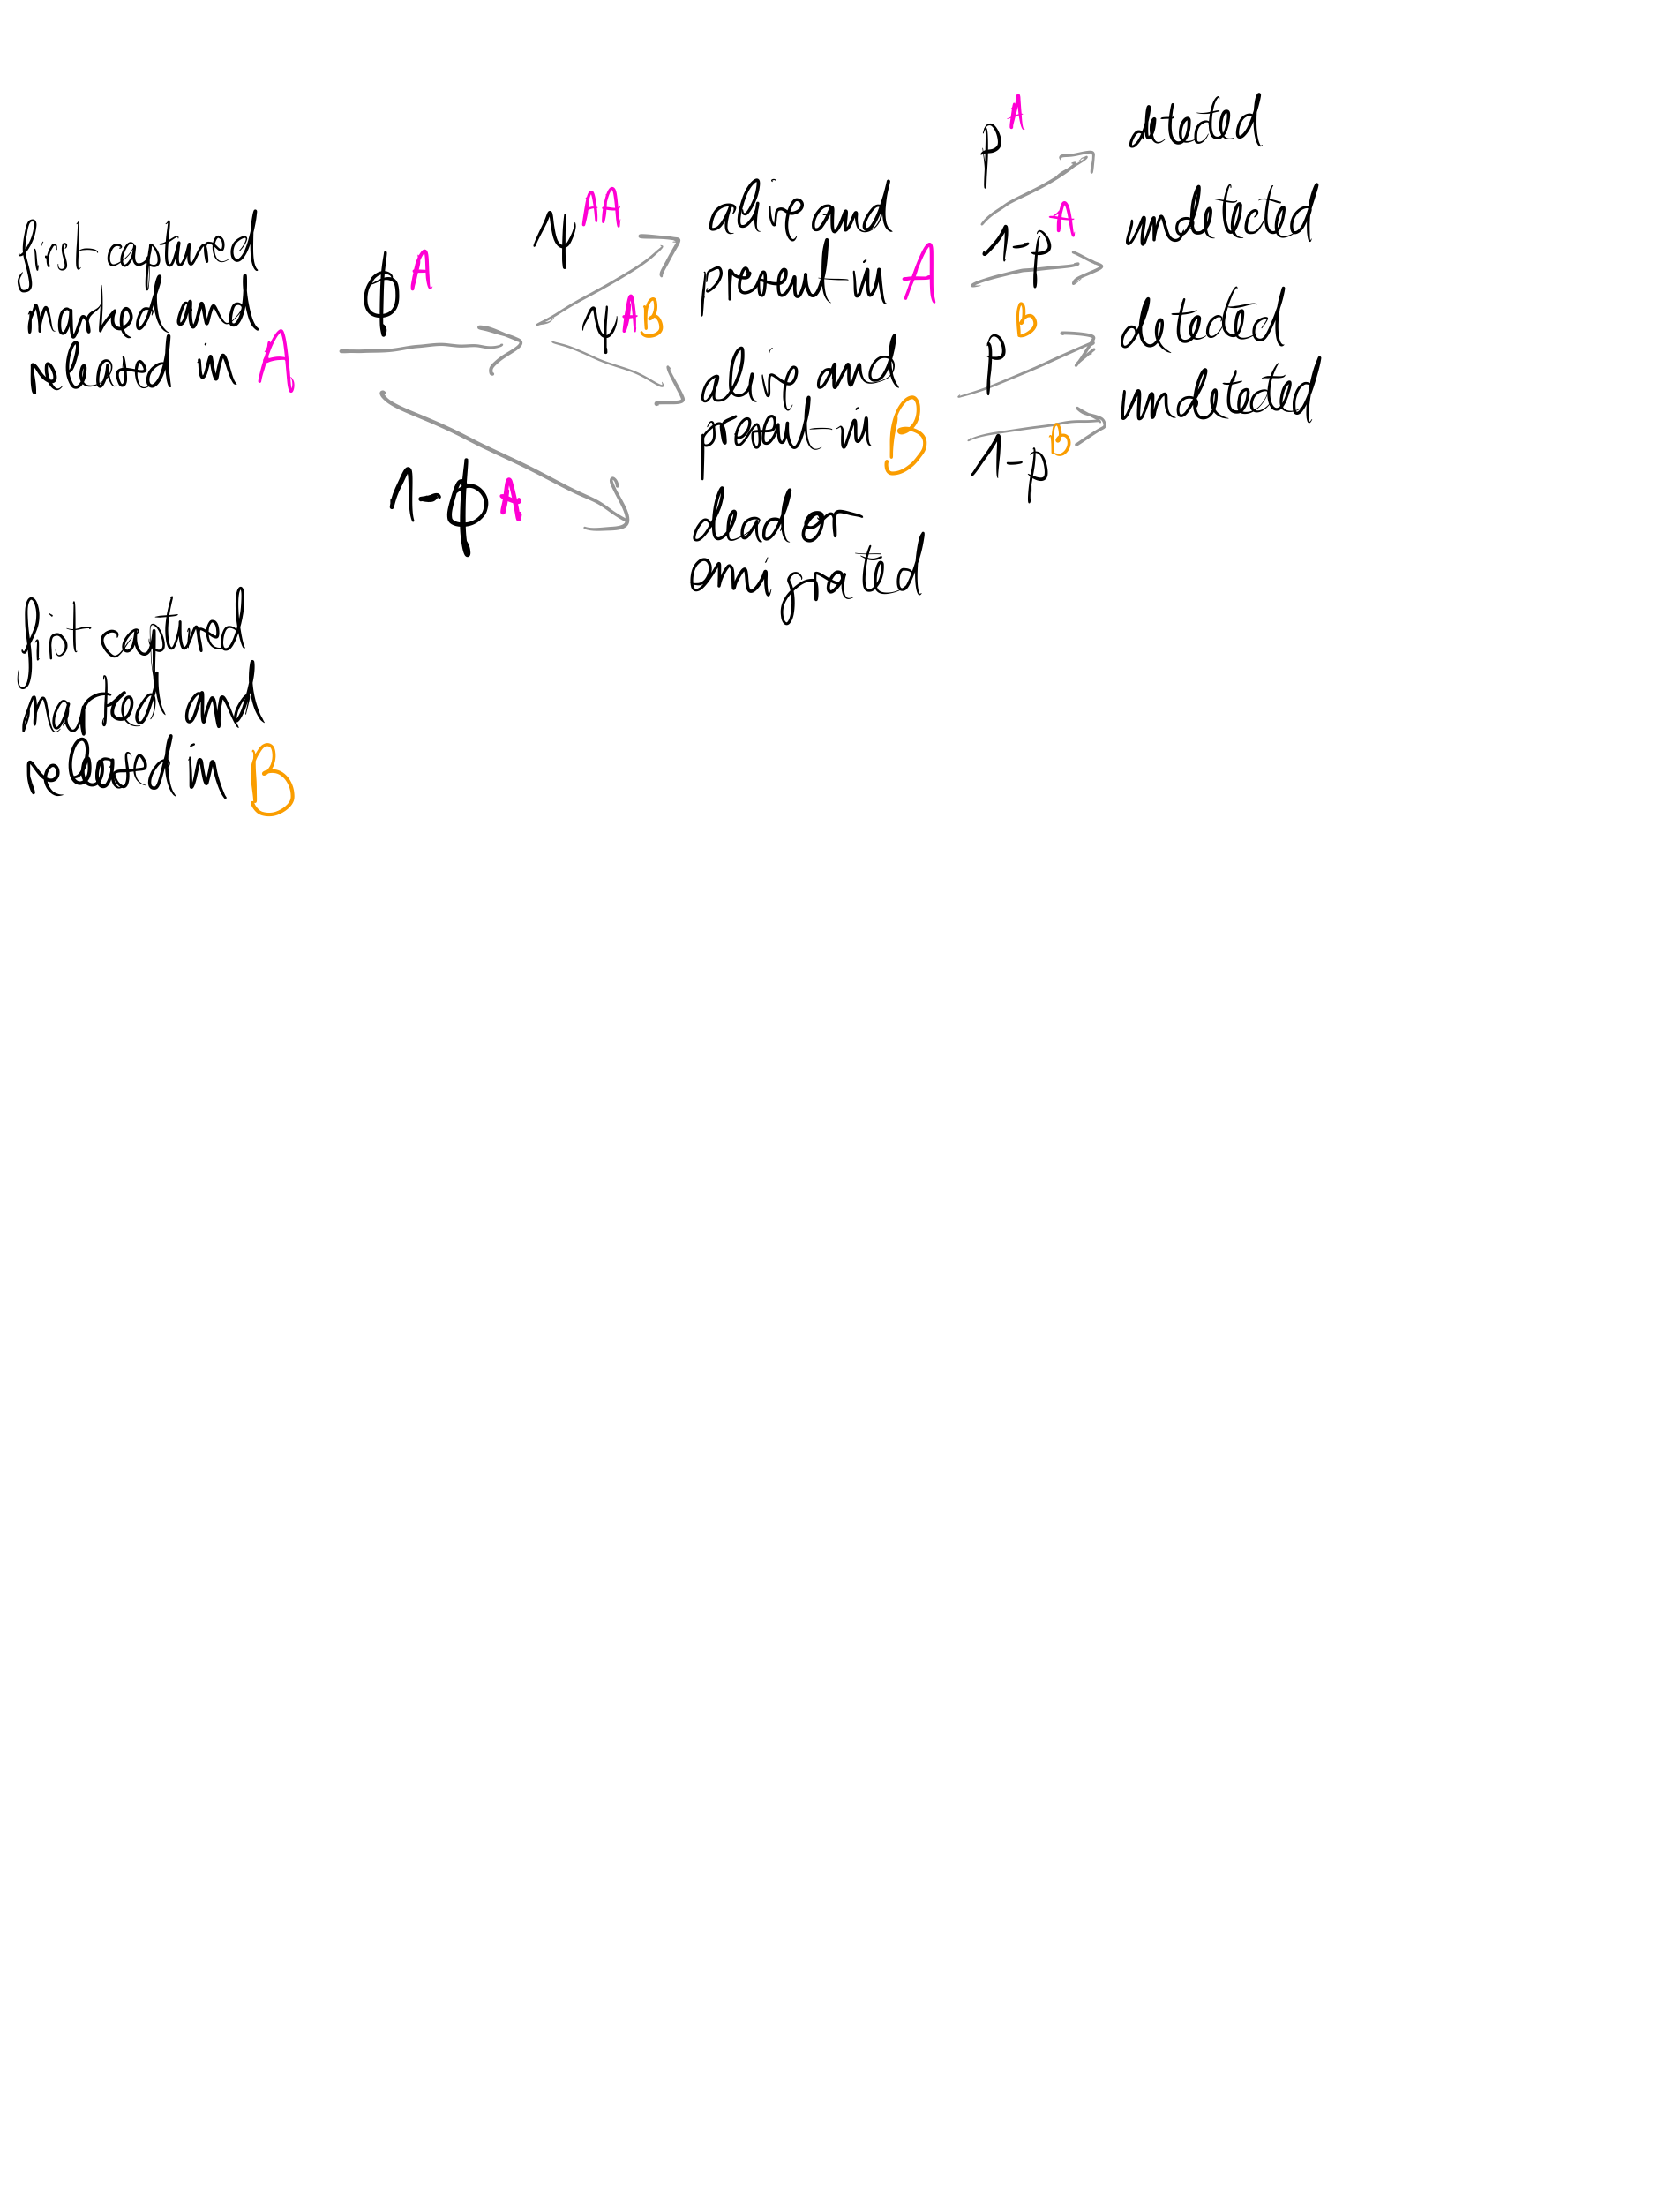 first captured
marked and
released in A
ϕ^A
1-ϕ^A
ψ^AA
ψ^AB
alive and
present in A
alive and
present in B
dead or
emigrated
p^A
detected
1-p^A
undetected
p^B
detected
1-p^B
undetected
fist captured
marked and
released in B